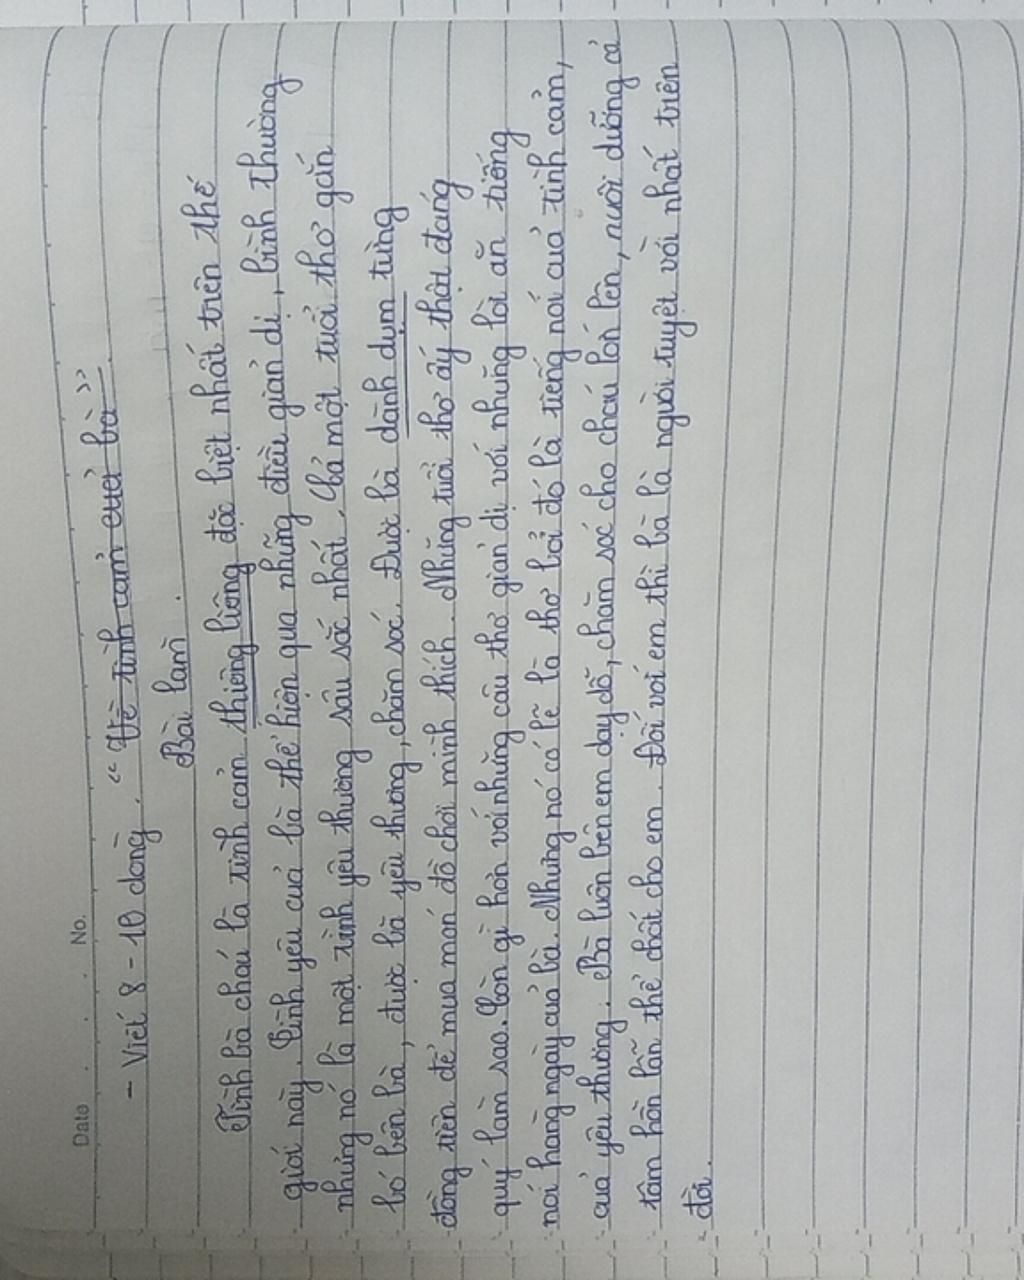 Date . . . No.
- Viết 8 - 10 dòng. "Về tình cảm cuả bà"
Bài làm .
Tình bà cháu là tình cảm thiêng liêng đặc biệt nhất trên thế
giới này. Tình yêu cuả bà thể hiện qua những điều giản dị, bình thường
nhưng nó là một tình yêu thương sâu sắc nhất. Cả một tuổi thơ gắn
bó bên bà, được bà yêu thương, chăm sóc. Được bà dành dụm từng
đồng tiền để mua món đồ chơi mình thích. Những tuổi thơ ấy thật đáng
quý làm sao. Còn gì hơn với những câu thơ giản dị với những lời ăn tiếng
nói hàng ngày cuả bà. Nhưng nó có lẽ là thơ bởi đó là tiếng nói cuả tình cảm,
cuả yêu thương. Bà luôn bên em dạy dỗ, chăm sóc cho cháu lớn lên, nuôi dưỡng cả
tâm hồn lẫn thể chất cho em. Đối với em thì bà là người tuyệt vời nhất trên
đời.